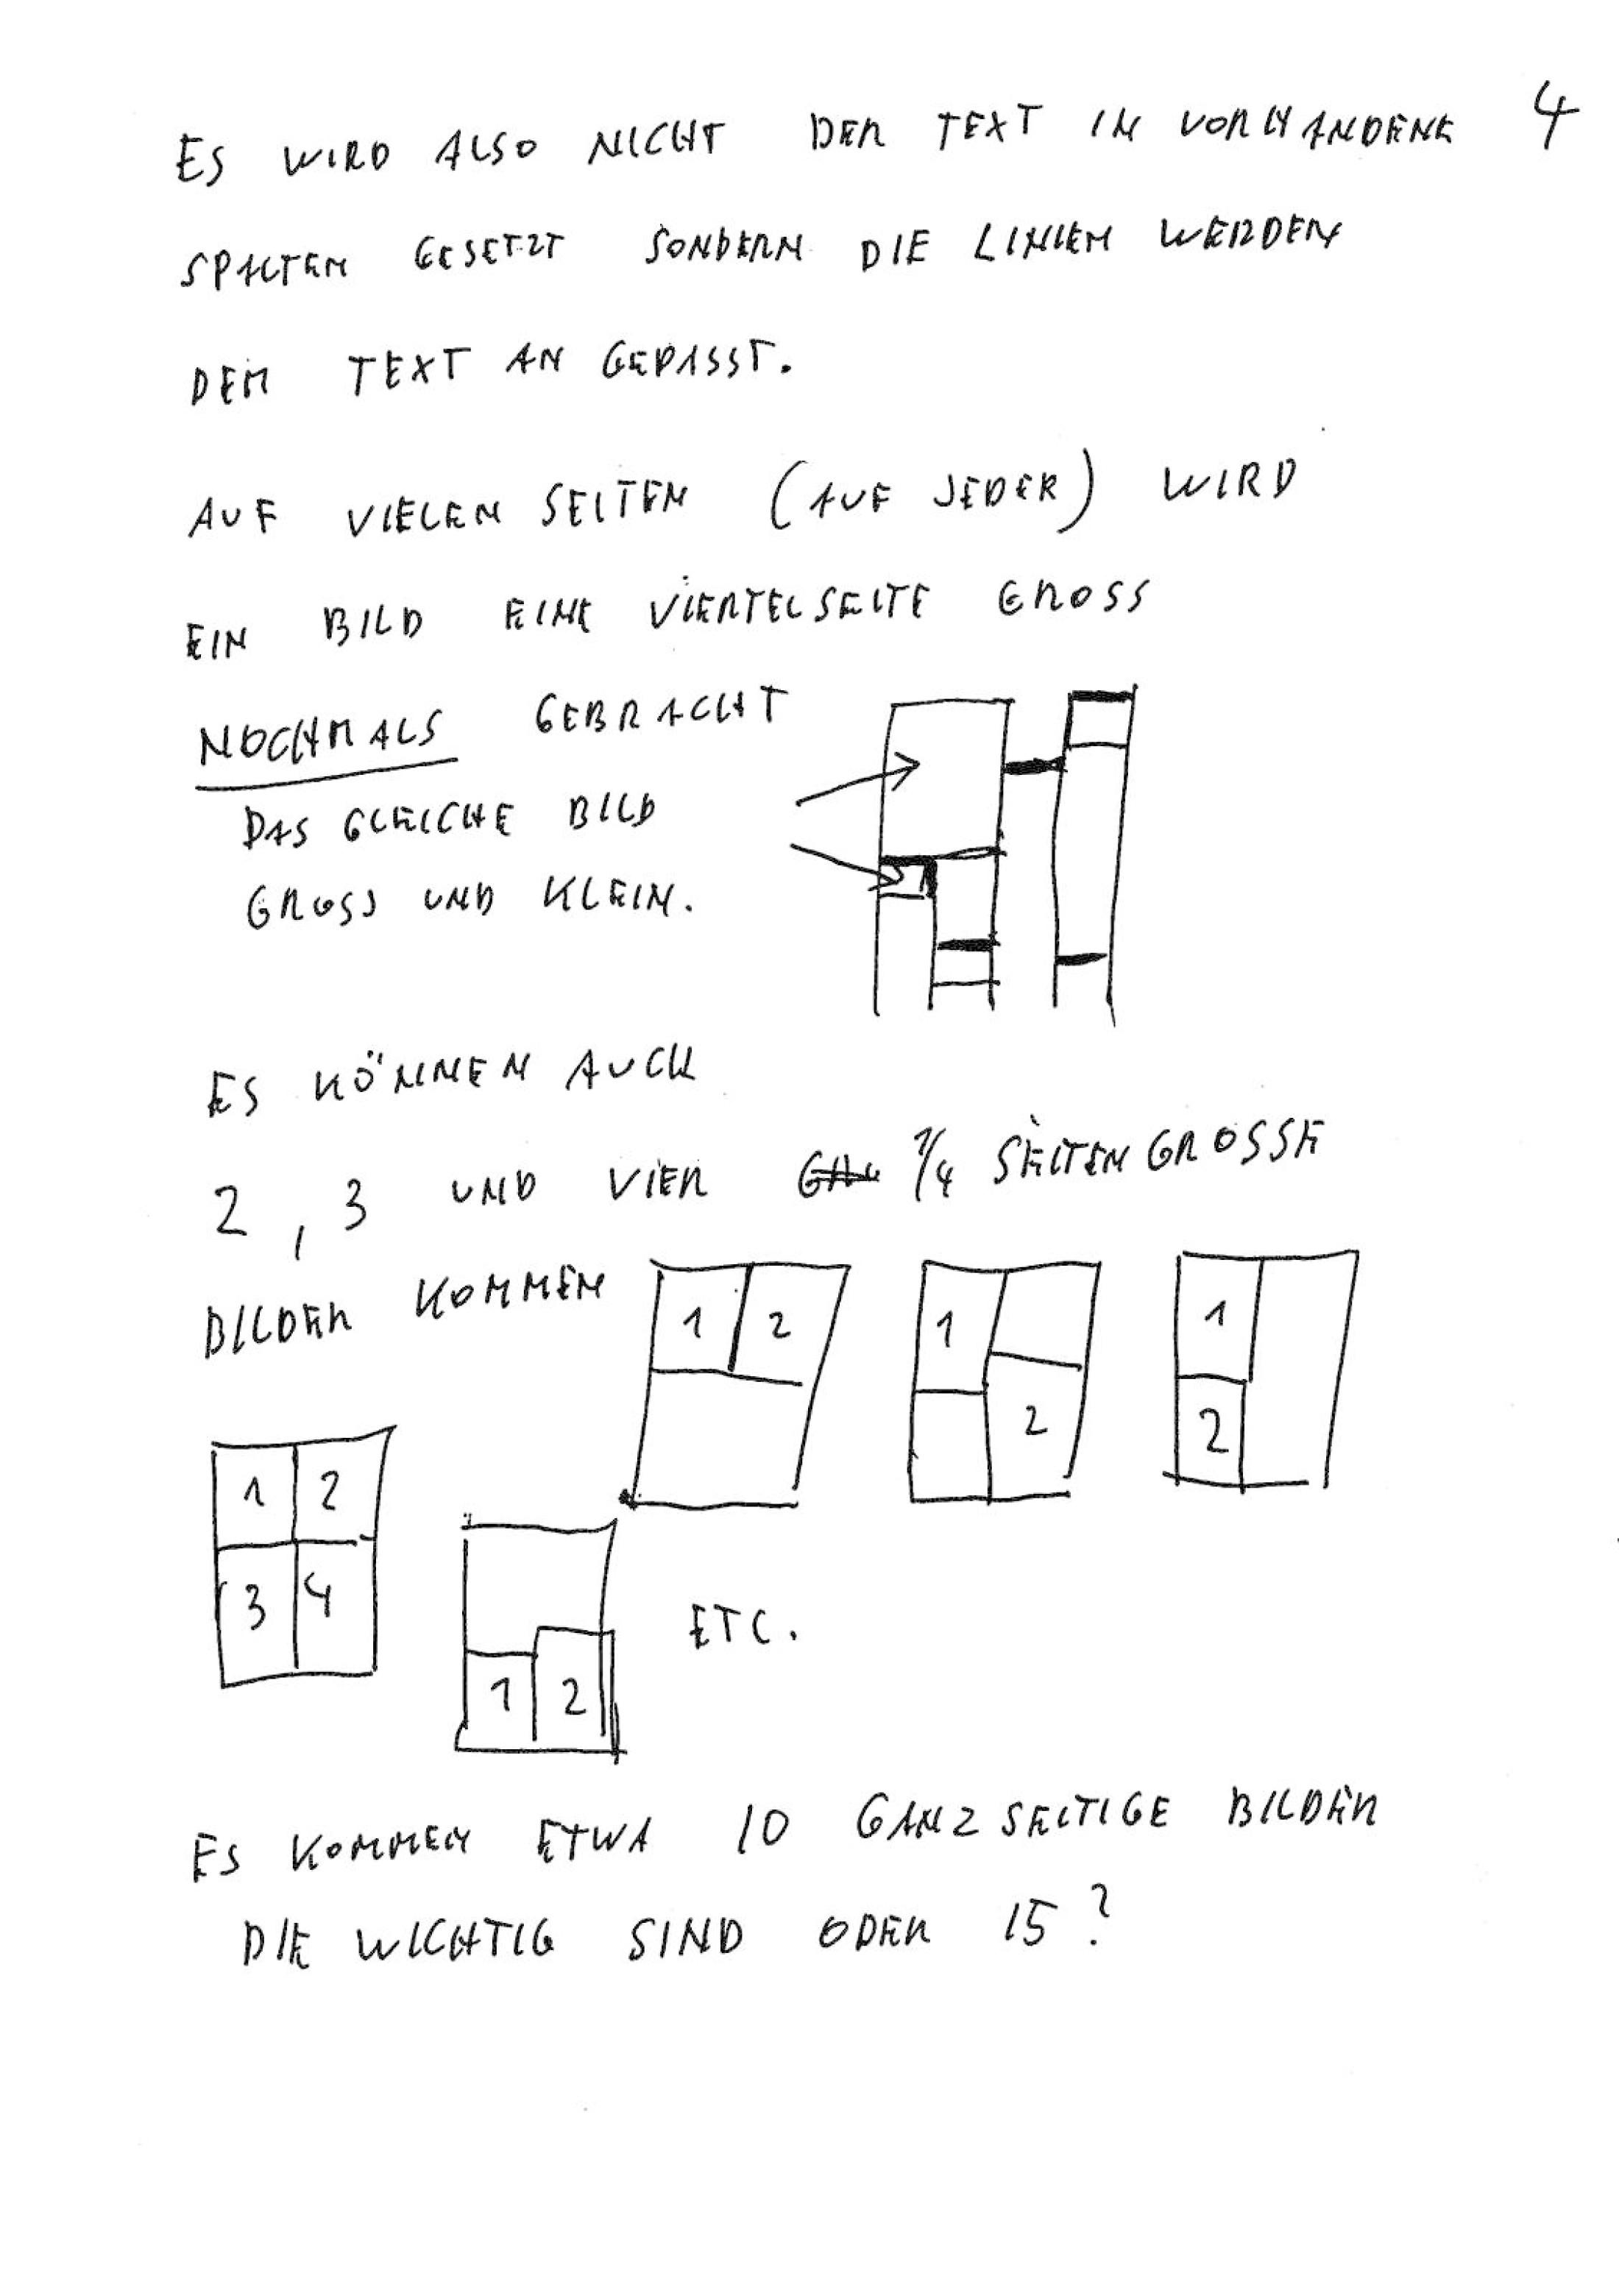 4
ES WIRD ALSO NICHT DER TEXT IN VORHANDENE
SPALTEN GESETZT SONDERN DIE LINIEN WERDEN
DEM TEXT AN GEPASST.
AUF VIELEN SEITEN (AUF JEDER) WIRD
EIN BILD EINE VIERTELSEITE GROSS
NOCHMALS GEBRACHT
DAS GLEICHE BILD
GROSS UND KLEIN.
ES KÖNNEN AUCH
2, 3 UND VIER 1/4 SEITENGROSSE
BILDER KOMMEN
1 2
1 2
1 2
1 2
3 4
1 2
ETC.
ES KOMMEN ETWA 10 GANZSEITIGE BILDER
DIE WICHTIG SIND ODER 15?